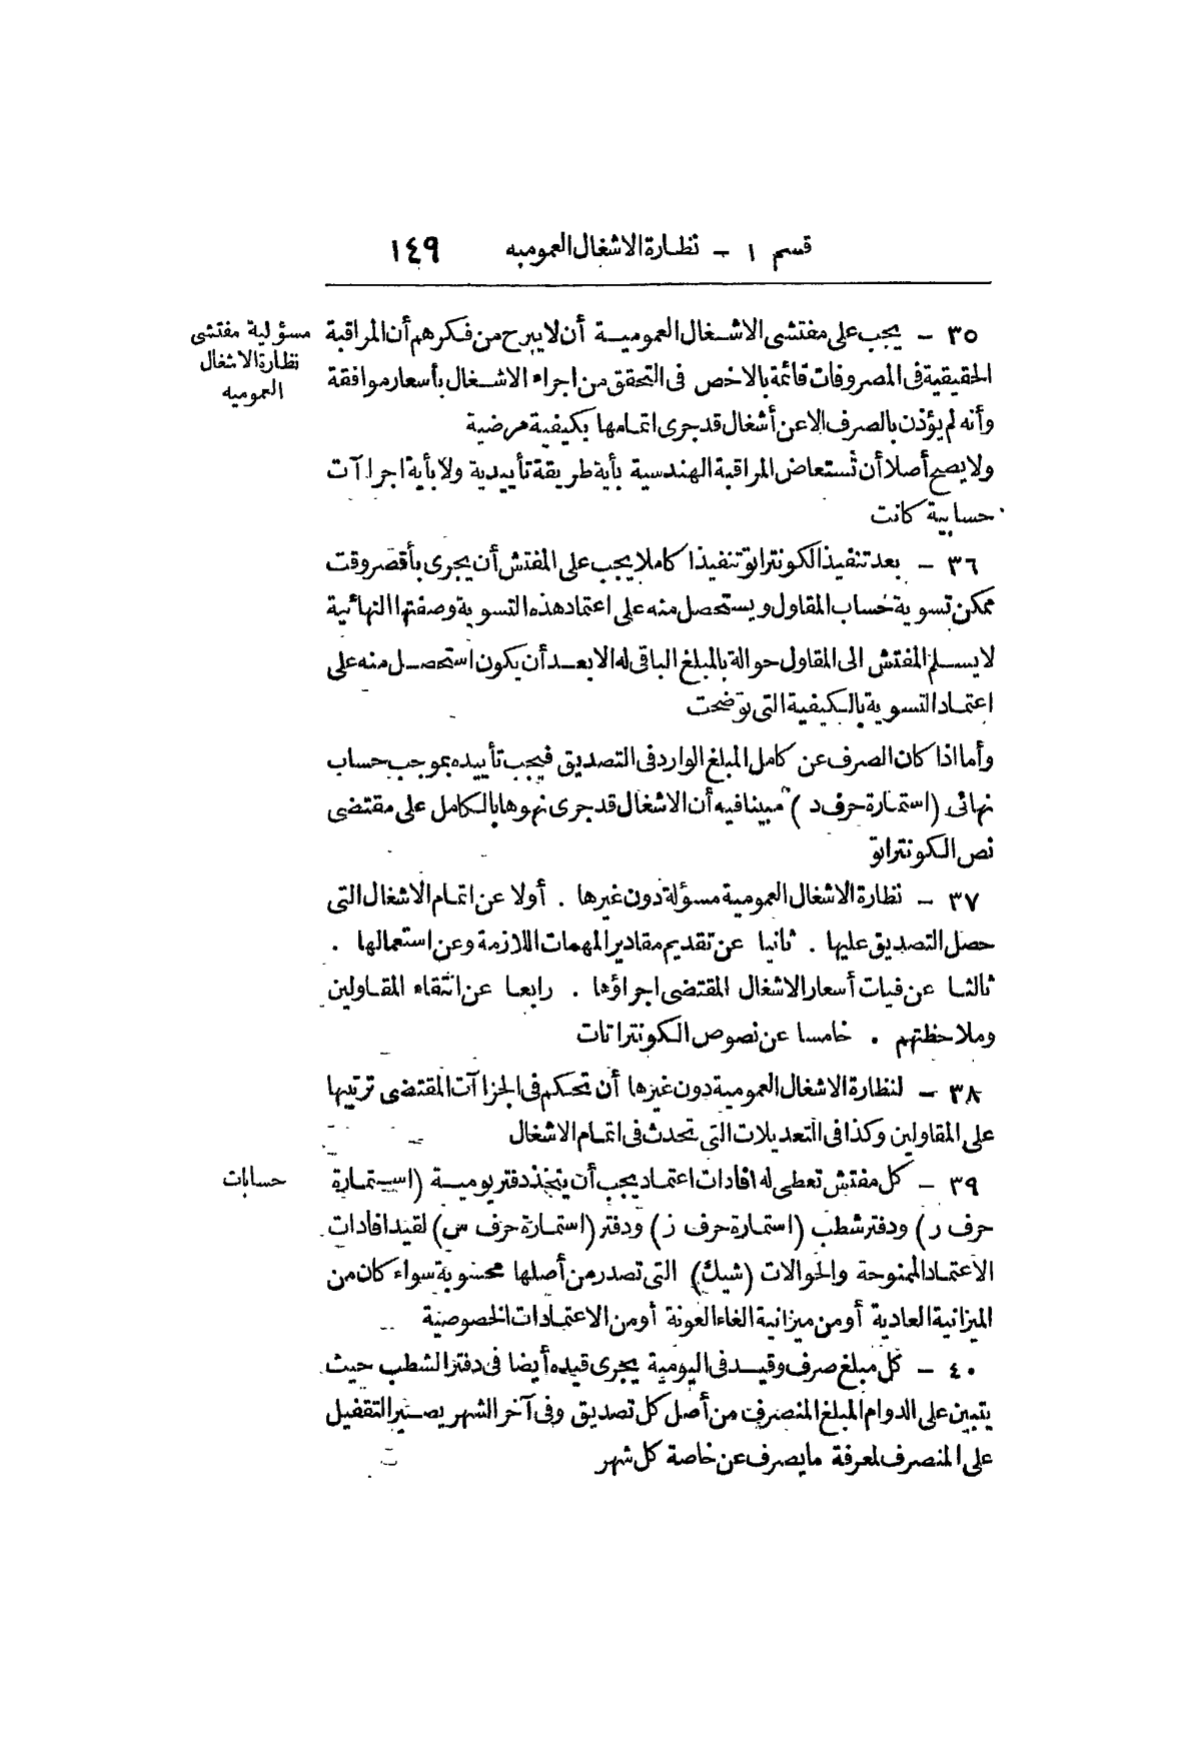 قسم ١ - نظارة الاشغال العموميه ١٤٩
مسؤلية مفتشى
نظارة الاشغال
العموميه
٣٥ - يجب على مفتشى الاشغال العمومية أن لا يبرح من فكرهم أن المراقبة
الحقيقية فى المصروفات قائمة بالاخص فى التحقق من اجراء الاشغال بأسعار موافقة
وأنه لم يؤذن بالصرف الا عن أشغال قد جرى اتمامها بكيفية مرضية
ولا يصح أصلا أن تستعاض المراقبة الهندسية بأية طريقة تأييدية ولا بأية اجراآت
حسابية كانت
٣٦ - بعد تنفيذ الكونتراتو تنفيذا كاملا يجب على المفتش أن يجرى بأقصر وقت
ممكن تسوية حساب المقاول ويستحصل منه على اعتماد هذه التسوية وصفتها النهائية
لا يسلم المفتش الى المقاول حوالة بالمبلغ الباقى له الا بعد أن يكون استحصل منه على
اعتماد التسوية بالكيفية التى توضحت
وأما اذا كان الصرف عن كامل المبلغ الوارد فى التصديق فيجب تأييده بموجب حساب
نهائى (استمارة حرف د) مبينا فيه أن الاشغال قد جرى نهوها بالكامل على مقتضى
نص الكونتراتو
٣٧ - نظارة الاشغال العمومية مسؤلة دون غيرها . أولا عن اتمام الاشغال التى
حصل التصديق عليها . ثانيا عن تقديم مقادير المهمات اللازمة وعن استعمالها .
ثالثا عن فيات أسعار الاشغال المقتضى اجراؤها . رابعا عن انتقاء المقاولين
وملاحظتهم . خامسا عن نصوص الكونتراتات
٣٨ - لنظارة الاشغال العمومية دون غيرها أن تحكم فى الجزاآت المقتضى ترتيبها
على المقاولين وكذا فى التعديلات التى تحدث فى اتمام الاشغال
حسابات
٣٩ - كل مفتش تعطى له افادات اعتماد يجب أن يتخذ دفتر يومية (استمارة
حرف ر) ودفتر شطب (استمارة حرف ز) ودفتر (استمارة حرف س) لقيد افادات
الاعتماد الممنوحة والحوالات (شيك) التى تصدر من أصلها محسوبة سواء كان من
الميزانية العادية أو من ميزانية الغاء العونة أو من الاعتمادات الخصوصية
٤٠ - كل مبلغ صرف وقيد فى اليومية يجرى قيده أيضا فى دفتر الشطب حيث
يتبين على الدوام المبلغ المنصرف من أصل كل تصديق وفى آخر الشهر يصير التقفيل
على المنصرف لمعرفة ما يصرف عن خاصة كل شهر